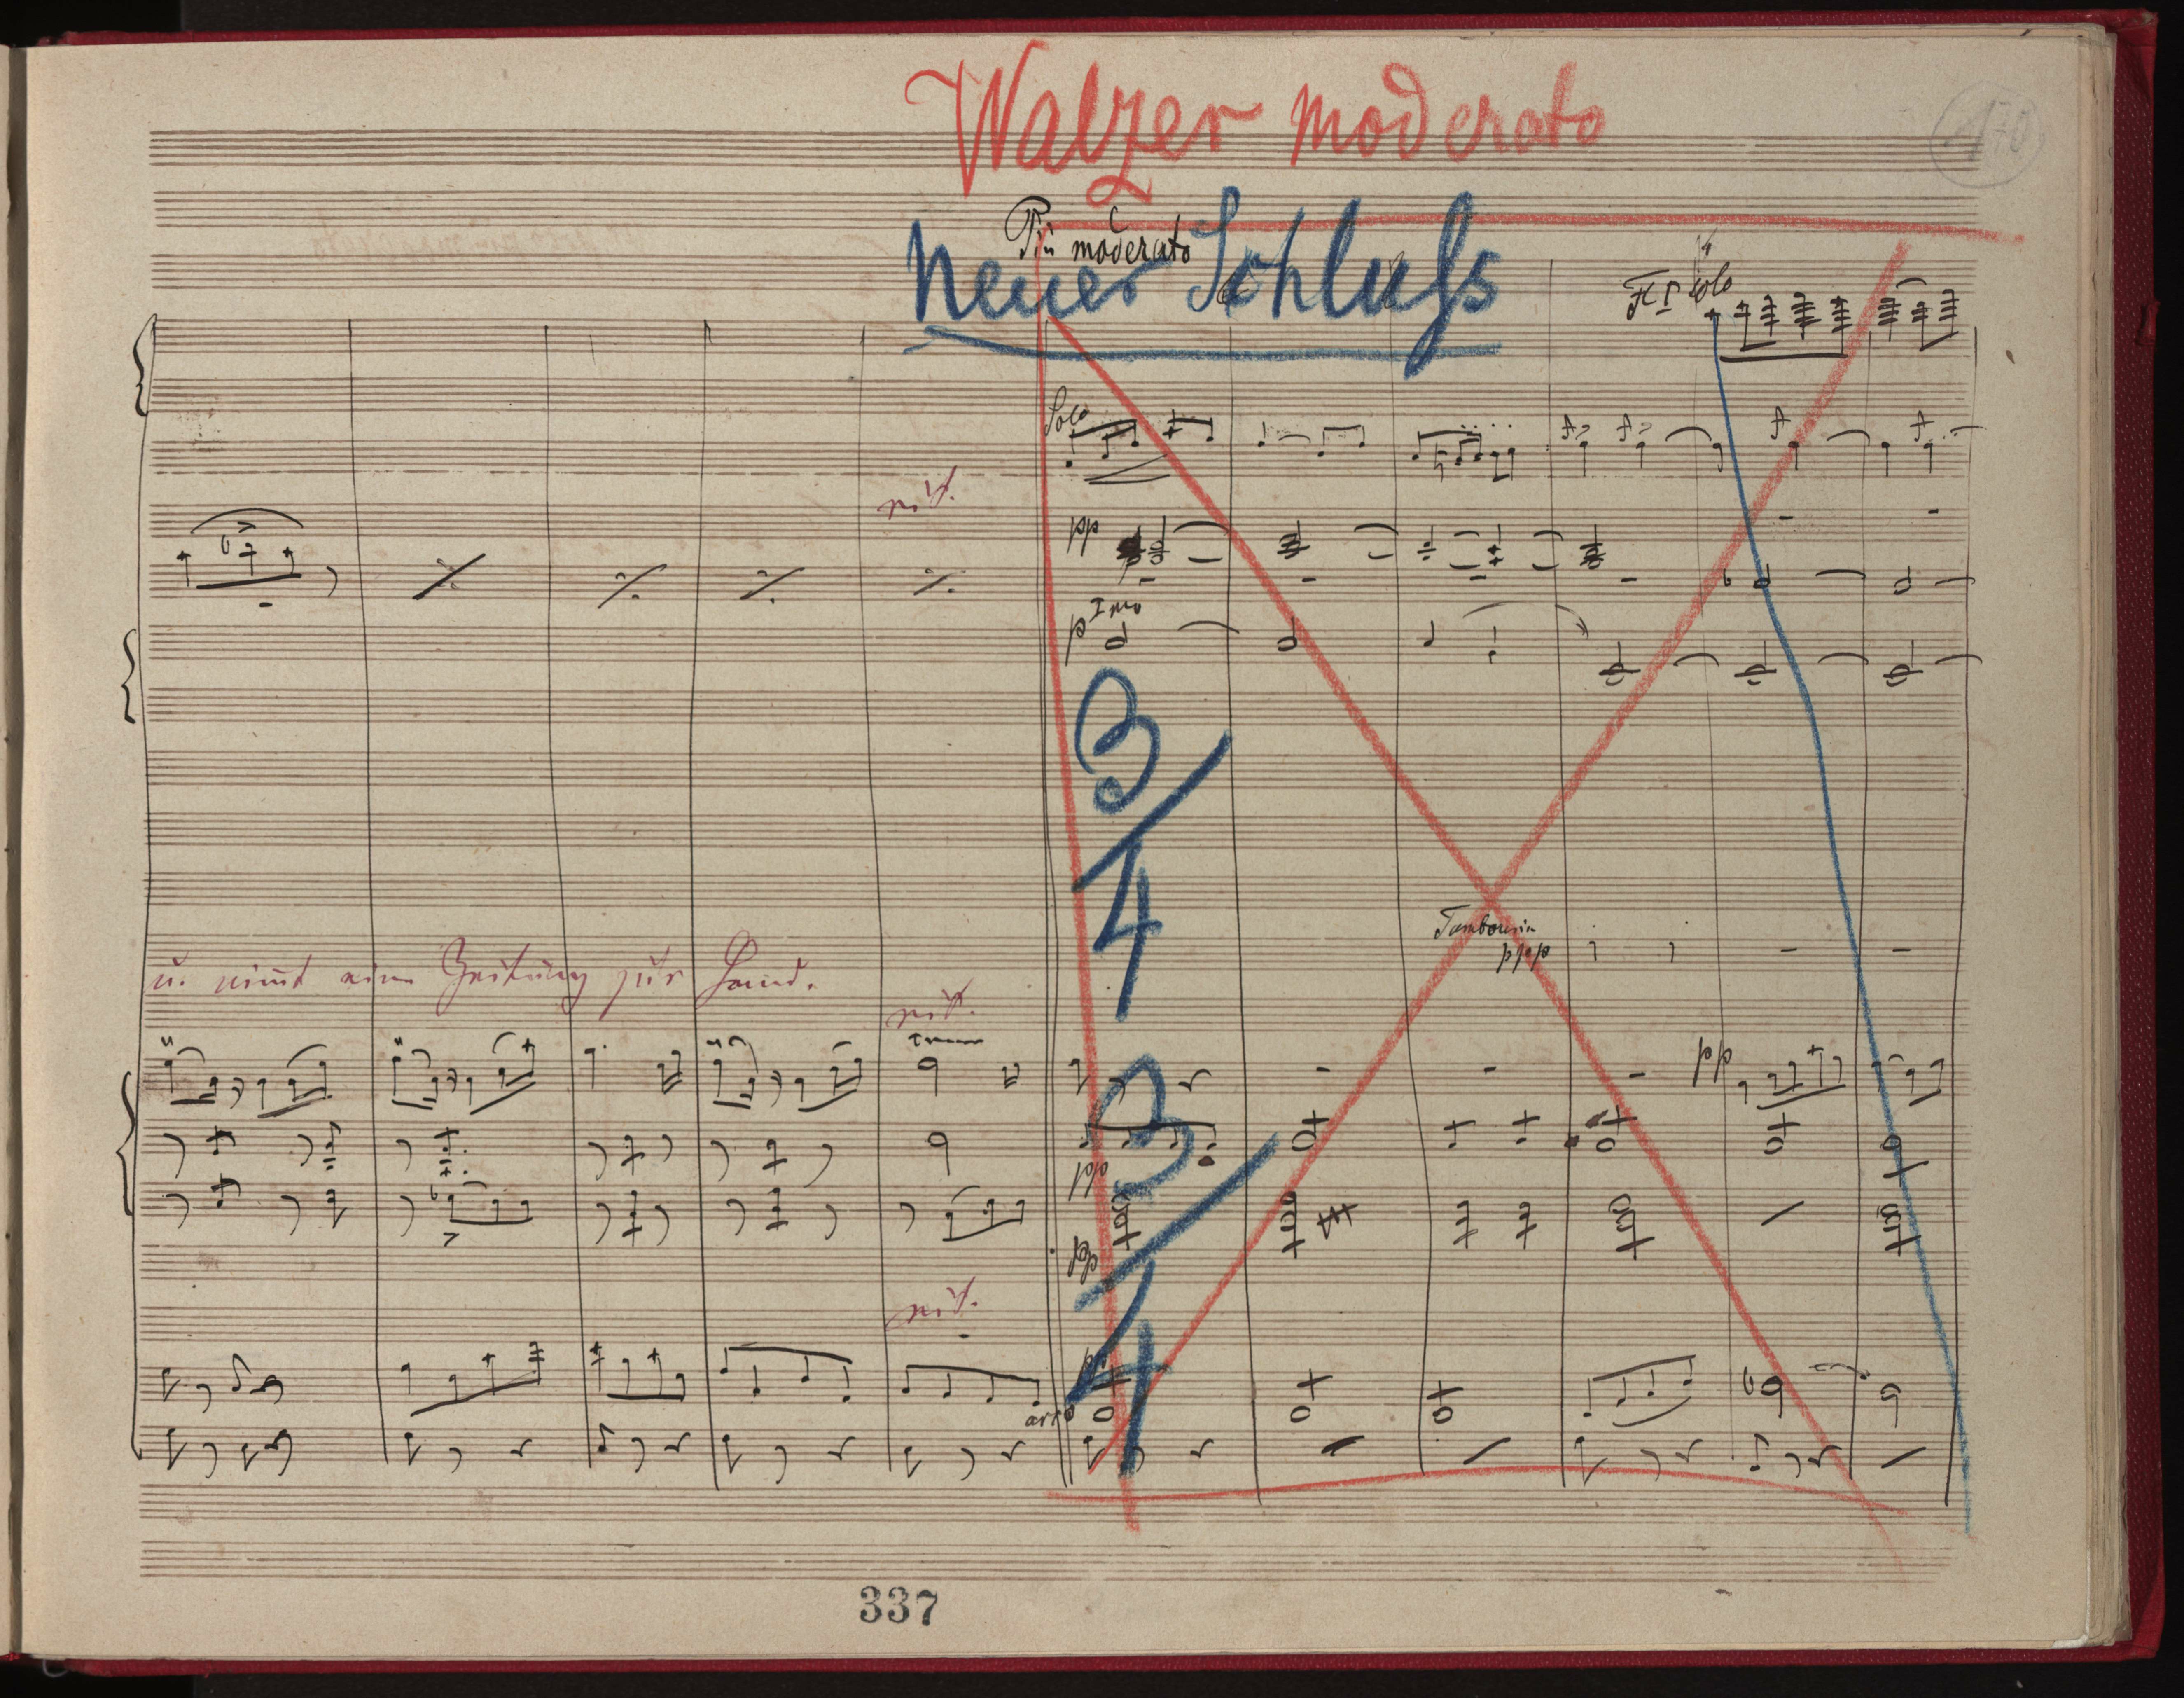 Walzer moderato
170
Più moderato
Neuer Schluss
Fl Solo
Solo
rit.
pp
Imo
p
3/4
Tambourin
ppp
u. nimt eine Zeitung zur Hand.
rit.
pp
3/4
pp
pp
rit.
pp
arco
337